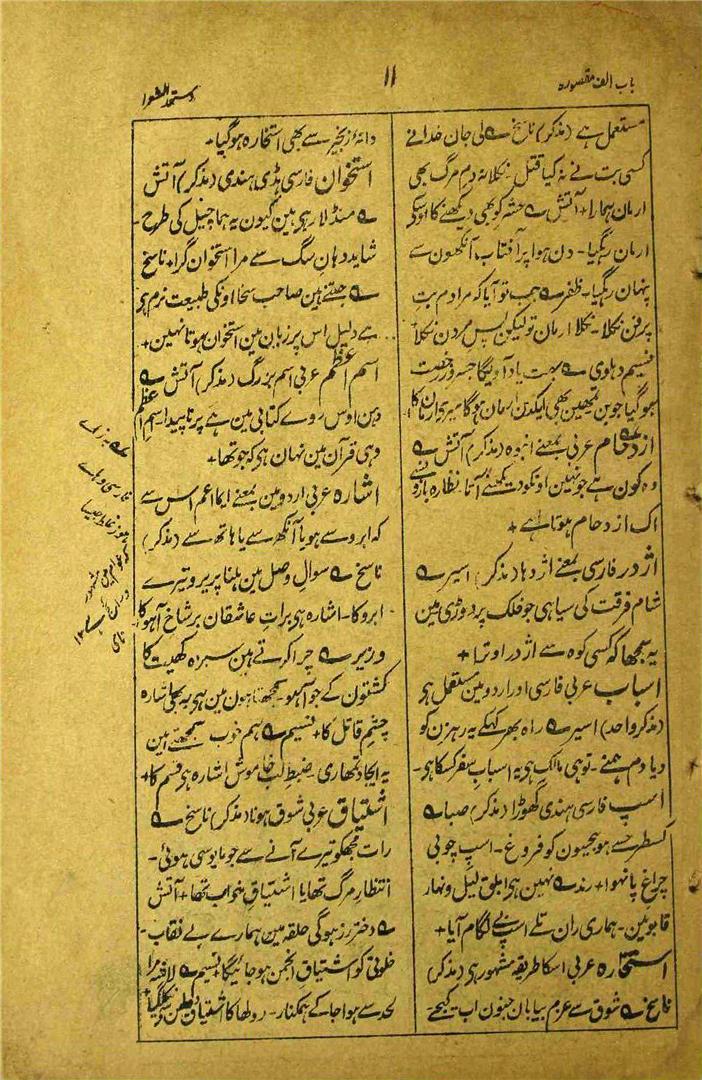 باب الف مقصورہ
۱۱
مستعمل ہے (مذکر) ناسخ ؎ لی جان خدا نے
کسی بت نے نہ کیا قتل ۔ نکلا نہ دم مرگ بھی
ارمان ہمارا + آتش ؎ حشر کو بھی دیکھنے کا اوسکی
ارمان رہگیا ۔ دن ہوا پر آفتاب آنکھون سے
پنہان رہگیا ۔ ظفر ؎ جب تو آیا کہ مرا دم بتِ
پرفن نکلا ۔ نکلا ارمان تو لیکن پس مردن نکلا
نسیم دہلوی ؎ بہت یاد آویگا جسروز رخصت
ہو گیا جوبن تمھین بھی ایکدن ارمان ہوگا میری ارمان کا
ازدحام عربی بمعنے انبوہ (مذکر) آتش ؎
وہ کون ہے جو نہین اونکو دیکھنے آتا نظارہ بازونسے
اک ازدحام ہوتا ہے +
اژدر فارسی بمعنے اژدہا (مذکر) اسیر ؎
شام فرقت کی سیاہی جو فلک پر دوڑی مین
یہ سمجھا کہ کسی کوہ سے اژدر اوترا +
اسباب عربی فارسی اور اردو مین مستعمل ہی
(مذکر واحد) اسیر ؎ راہ بھر کہکے یہ رہزن کو
دیا دم ہمنے ۔ توہی مالک ہی یہ اسباب سفر کسکا ہی ۔
اسپ فارسی ہندی گھوڑا (مذکر) صبا ؎
کسطرحسے ہو یحیون کو فروغ ۔ اسپ چوبی
چراغ پا نہوا + رند ؎ نہین ہی ابلق لیل و نہار
قابو مین ۔ ہماری ران تلے اسپ بے لگام آیا +
استخارہ عربی اسکا طریقہ مشہور ہی (مذکر)
ناسخ ؎ شوق سے عزم بیابان جنون اب کیجیے
دانہ زنجیر سے بھی استخارہ ہوگیا +
استخوان فارسی ہڈی ہندی (مذکر) آتش
؎ منڈلا رہی ہین کیون یہ ہما چیل کی طرح ۔
شاید دہان سگ سے مرا استخوان گرا + ناسخ
؎ جتنے ہین صاحب سخا اونکی طبیعت نرم ہی
ہے دلیل اس پر زبان مین استخوان ہوتا نہین +
اسم اعظم عربی اسم بزرگ (مذکر) آتش ؎
دہن اوس روے کتابی مین ہے پر ناپیدا اسم اعظم
وہی قرآن مین نہان ہی کہ جو تھا +
اشارہ عربی اردو مین بمعنے ایما اعم اس سے
کہ ابرو سے ہو یا آنکھ سے یا ہاتھ سے (مذکر)
ناسخ ؎ سوال وصل مین ہلنا پریرو تیرے
ابرو کا ۔ اشارہ ہی برات عاشقان بر شاخ آہو کا
وزیر ؎ چرا کرتے ہین سبزہ کھیت کا
کشتون کے جو آہو ۔ سمجھتا ہون مین ہی یہ بھی اشارہ
چشم قاتل کا + نسیم ؎ ہم خوب سمجھتے ہین
یہ ایجاد تمھاری ۔ ضبط لب خاموش اشارہ ہی قسم کا +
اشتیاق عربی شوق ہونا (مذکر) ناسخ ؎
رات مجھکو تیرے آنے سے جو مایوسی ہوئی ۔
انتظار مرگ تھا یا اشتیاق خواب تھا + آتش
؎ دختر رز ہوگی حلقہ مین ہمارے بے نقاب ۔
خلوتی کو اشتیاق انجمن ہو جائیگا + نسیم ؎ لاشہ مرا
لحد سے ہوا جا کے ہمکنار ۔ دولھا کا اشتیاق